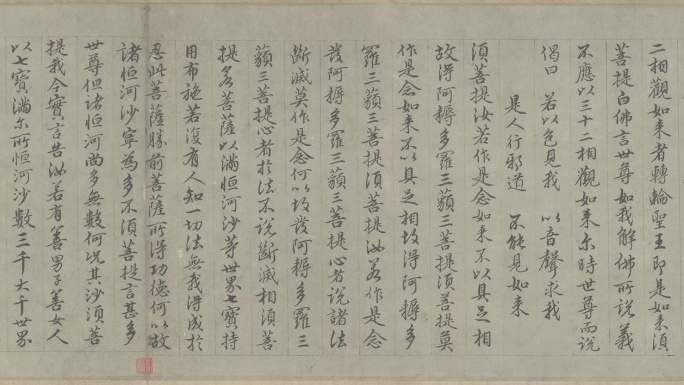 二相觀如來者轉輪聖王即是如來須
菩提白佛言世尊如我解佛所說義
不應以三十二相觀如來尔時世尊而說
偈曰 若以色見我 以音聲求我
是人行邪道 不能見如來
須菩提汝若作是念如來不以具足相
故得阿耨多羅三藐三菩提須菩提莫
作是念如來不以具足相故得阿耨多
羅三藐三菩提須菩提汝若作是念
發阿耨多羅三藐三菩提心者說諸法
斷滅莫作是念何以故發阿耨多羅三
藐三菩提心者於法不說斷滅相須菩
提若菩薩以滿恒河沙等世界七寶持
用布施若復有人知一切法無我得成於
忍此菩薩勝前菩薩所得功德何以故
諸恒河沙寧為多不須菩提言甚多
世尊但諸恒河尚多無數何況其沙須菩
提我今實言告汝若有善男子善女人
以七寶滿尔所恒河沙數三千大千世界